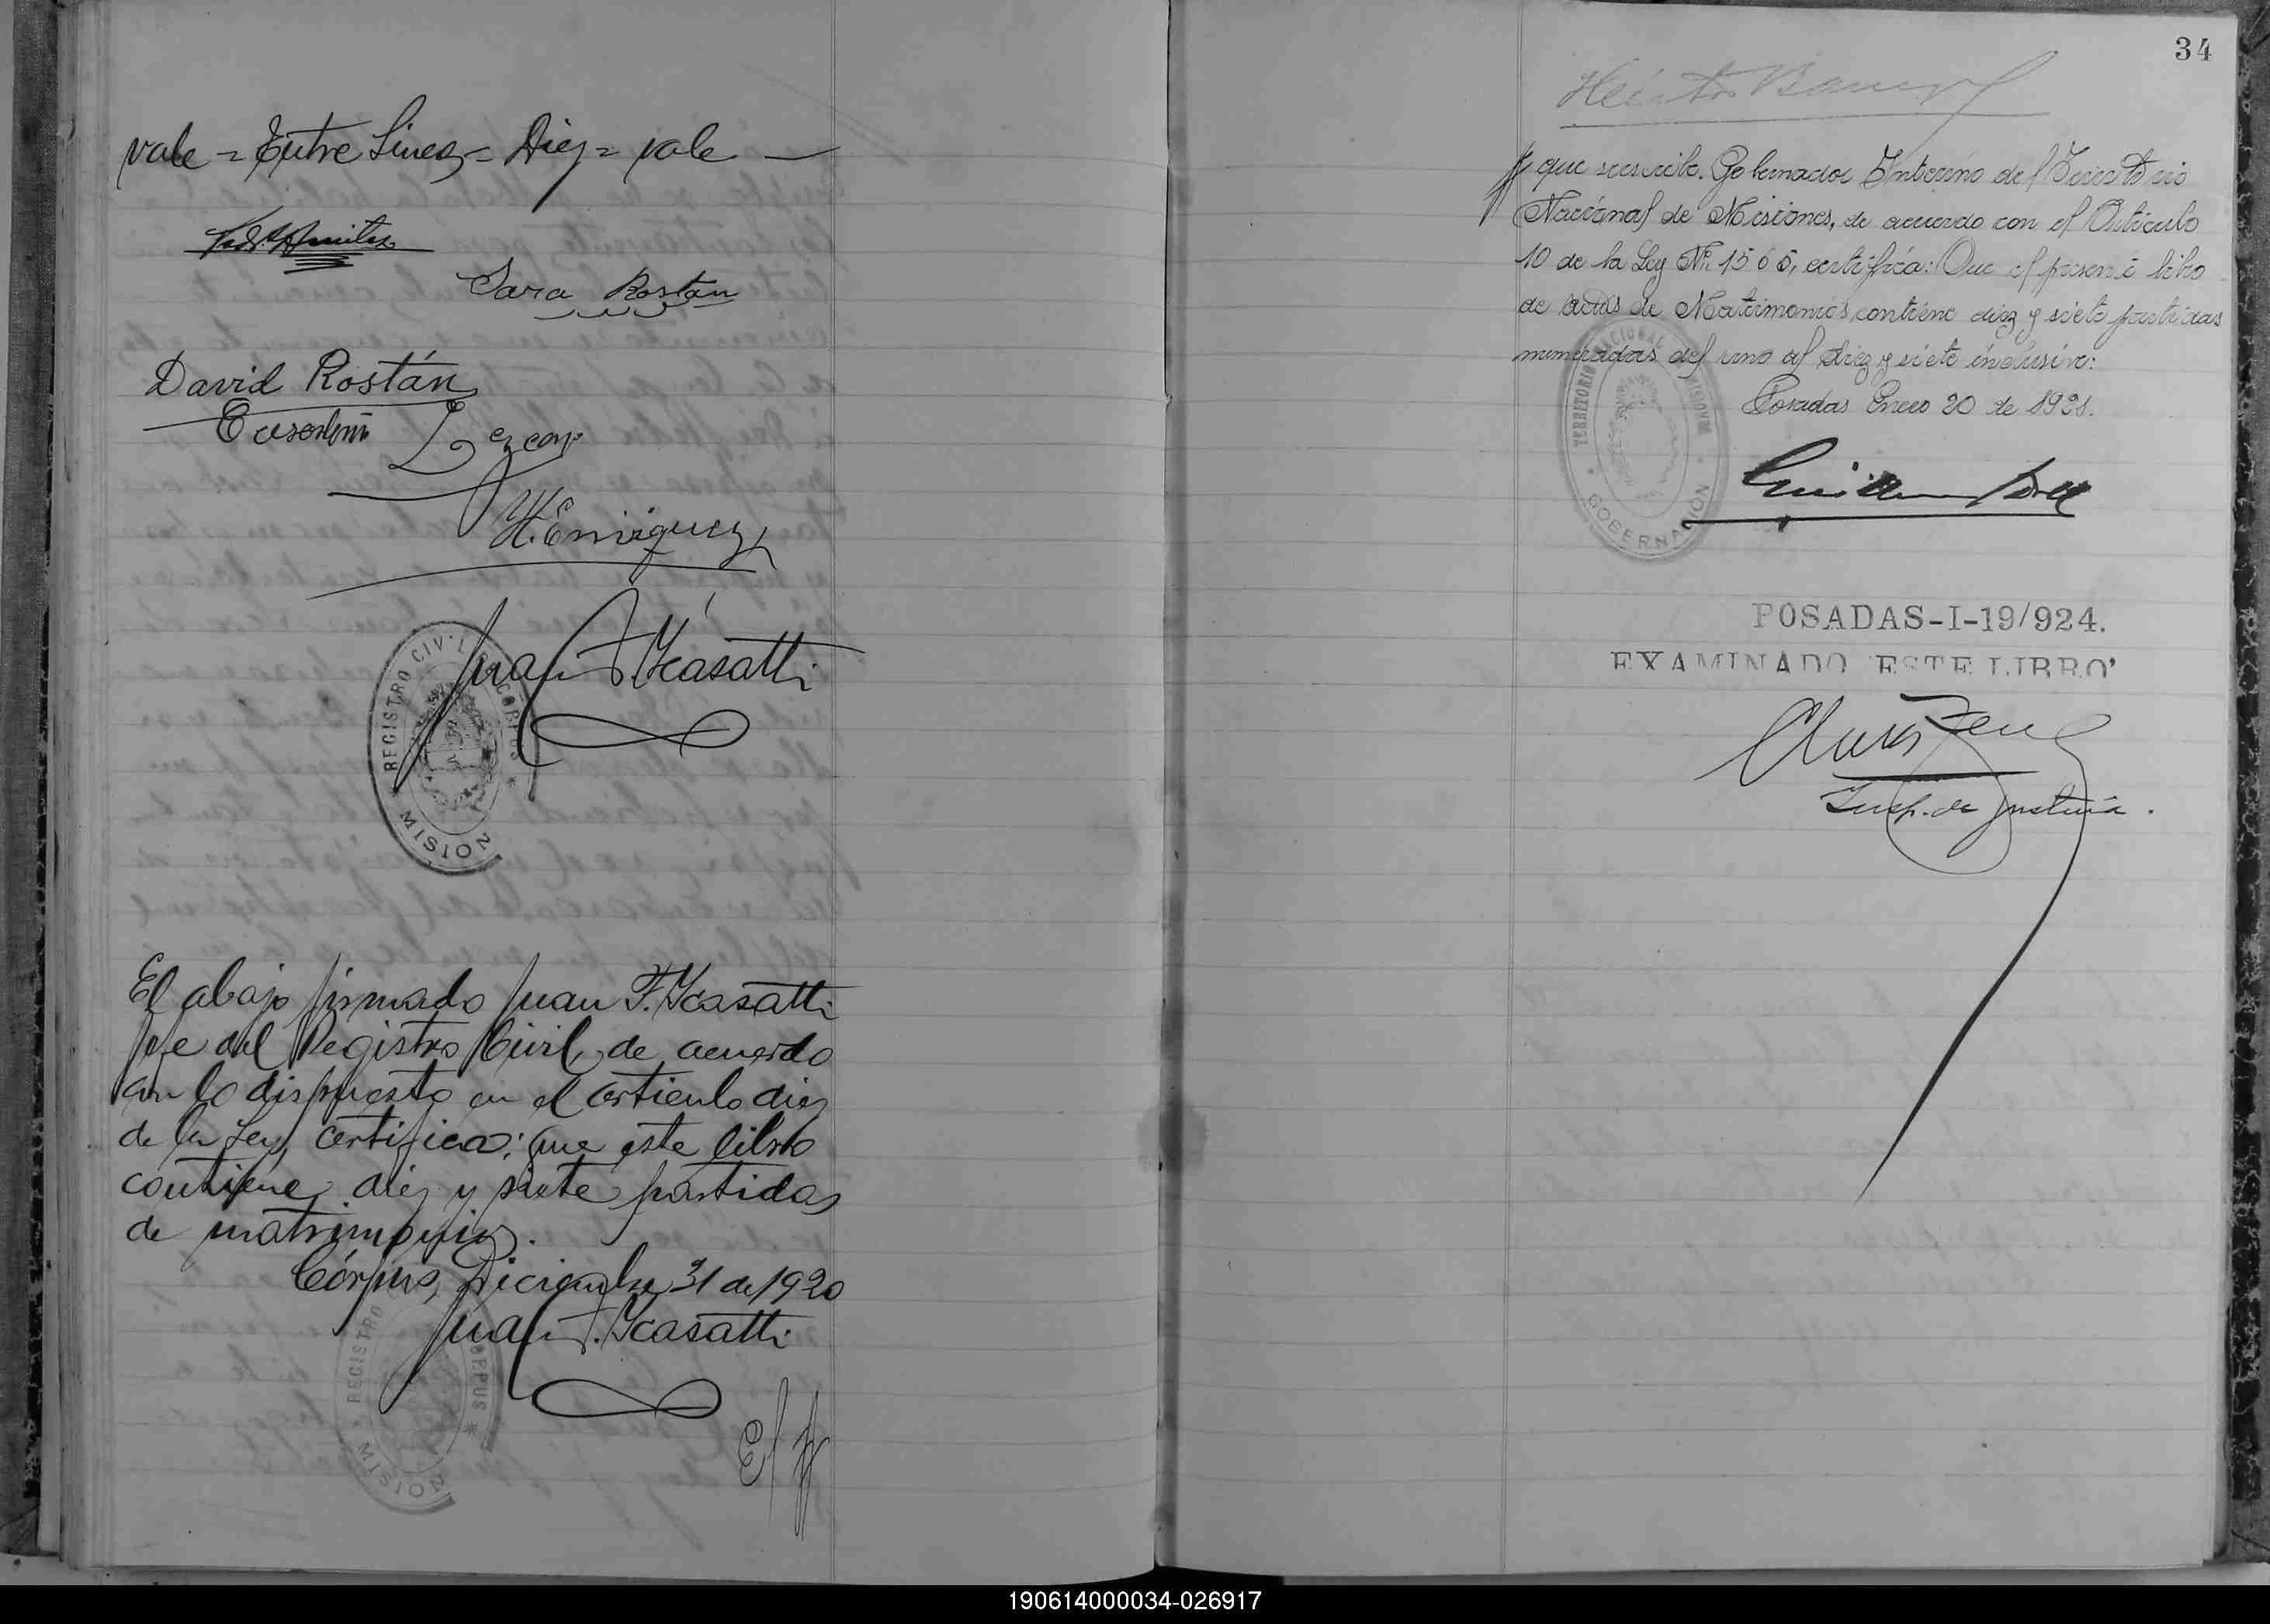 vale = Entre lineas = Diez = vale —
Sara Rostán
David Rostán
Lezcano
H. Enriquez
Juan F. Ycasatti
REGISTRO CIVIL CORPUS
MISIONES
El abajo firmado Juan F. Ycasatti
jefe del Registro Civil, de acuerdo
con lo dispuesto en el articulo diez
de la Ley, certifica: que este libro
contiene diez y siete partidas
de matrimonios.
Córpus, Diciembre 31 de 1920
Juan F. Ycasatti
REGISTRO CORPUS
MISION
El
34
que suscribe, Gobernador Interino del Territorio
Nacional de Misiones, de acuerdo con el Articulo
10 de la Ley Nº 1565, certifica: Que el presente libro
de actas de Matrimonios, contiene diez y siete partidas
numeradas del uno al diez y siete inclusive:
Posadas Enero 20 de 1921.
TERRITORIO NACIONAL MISIONES
GOBERNACIÓN
POSADAS-I-19/924.
EXAMINADO ESTE LIBRO
Insp. de Justicia.
190614000034-026917